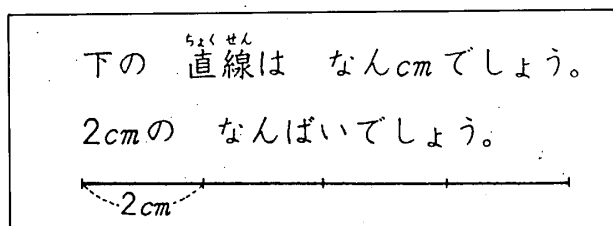 下の 直線は なんcmでしょう。
2cmの なんばいでしょう。
2cm